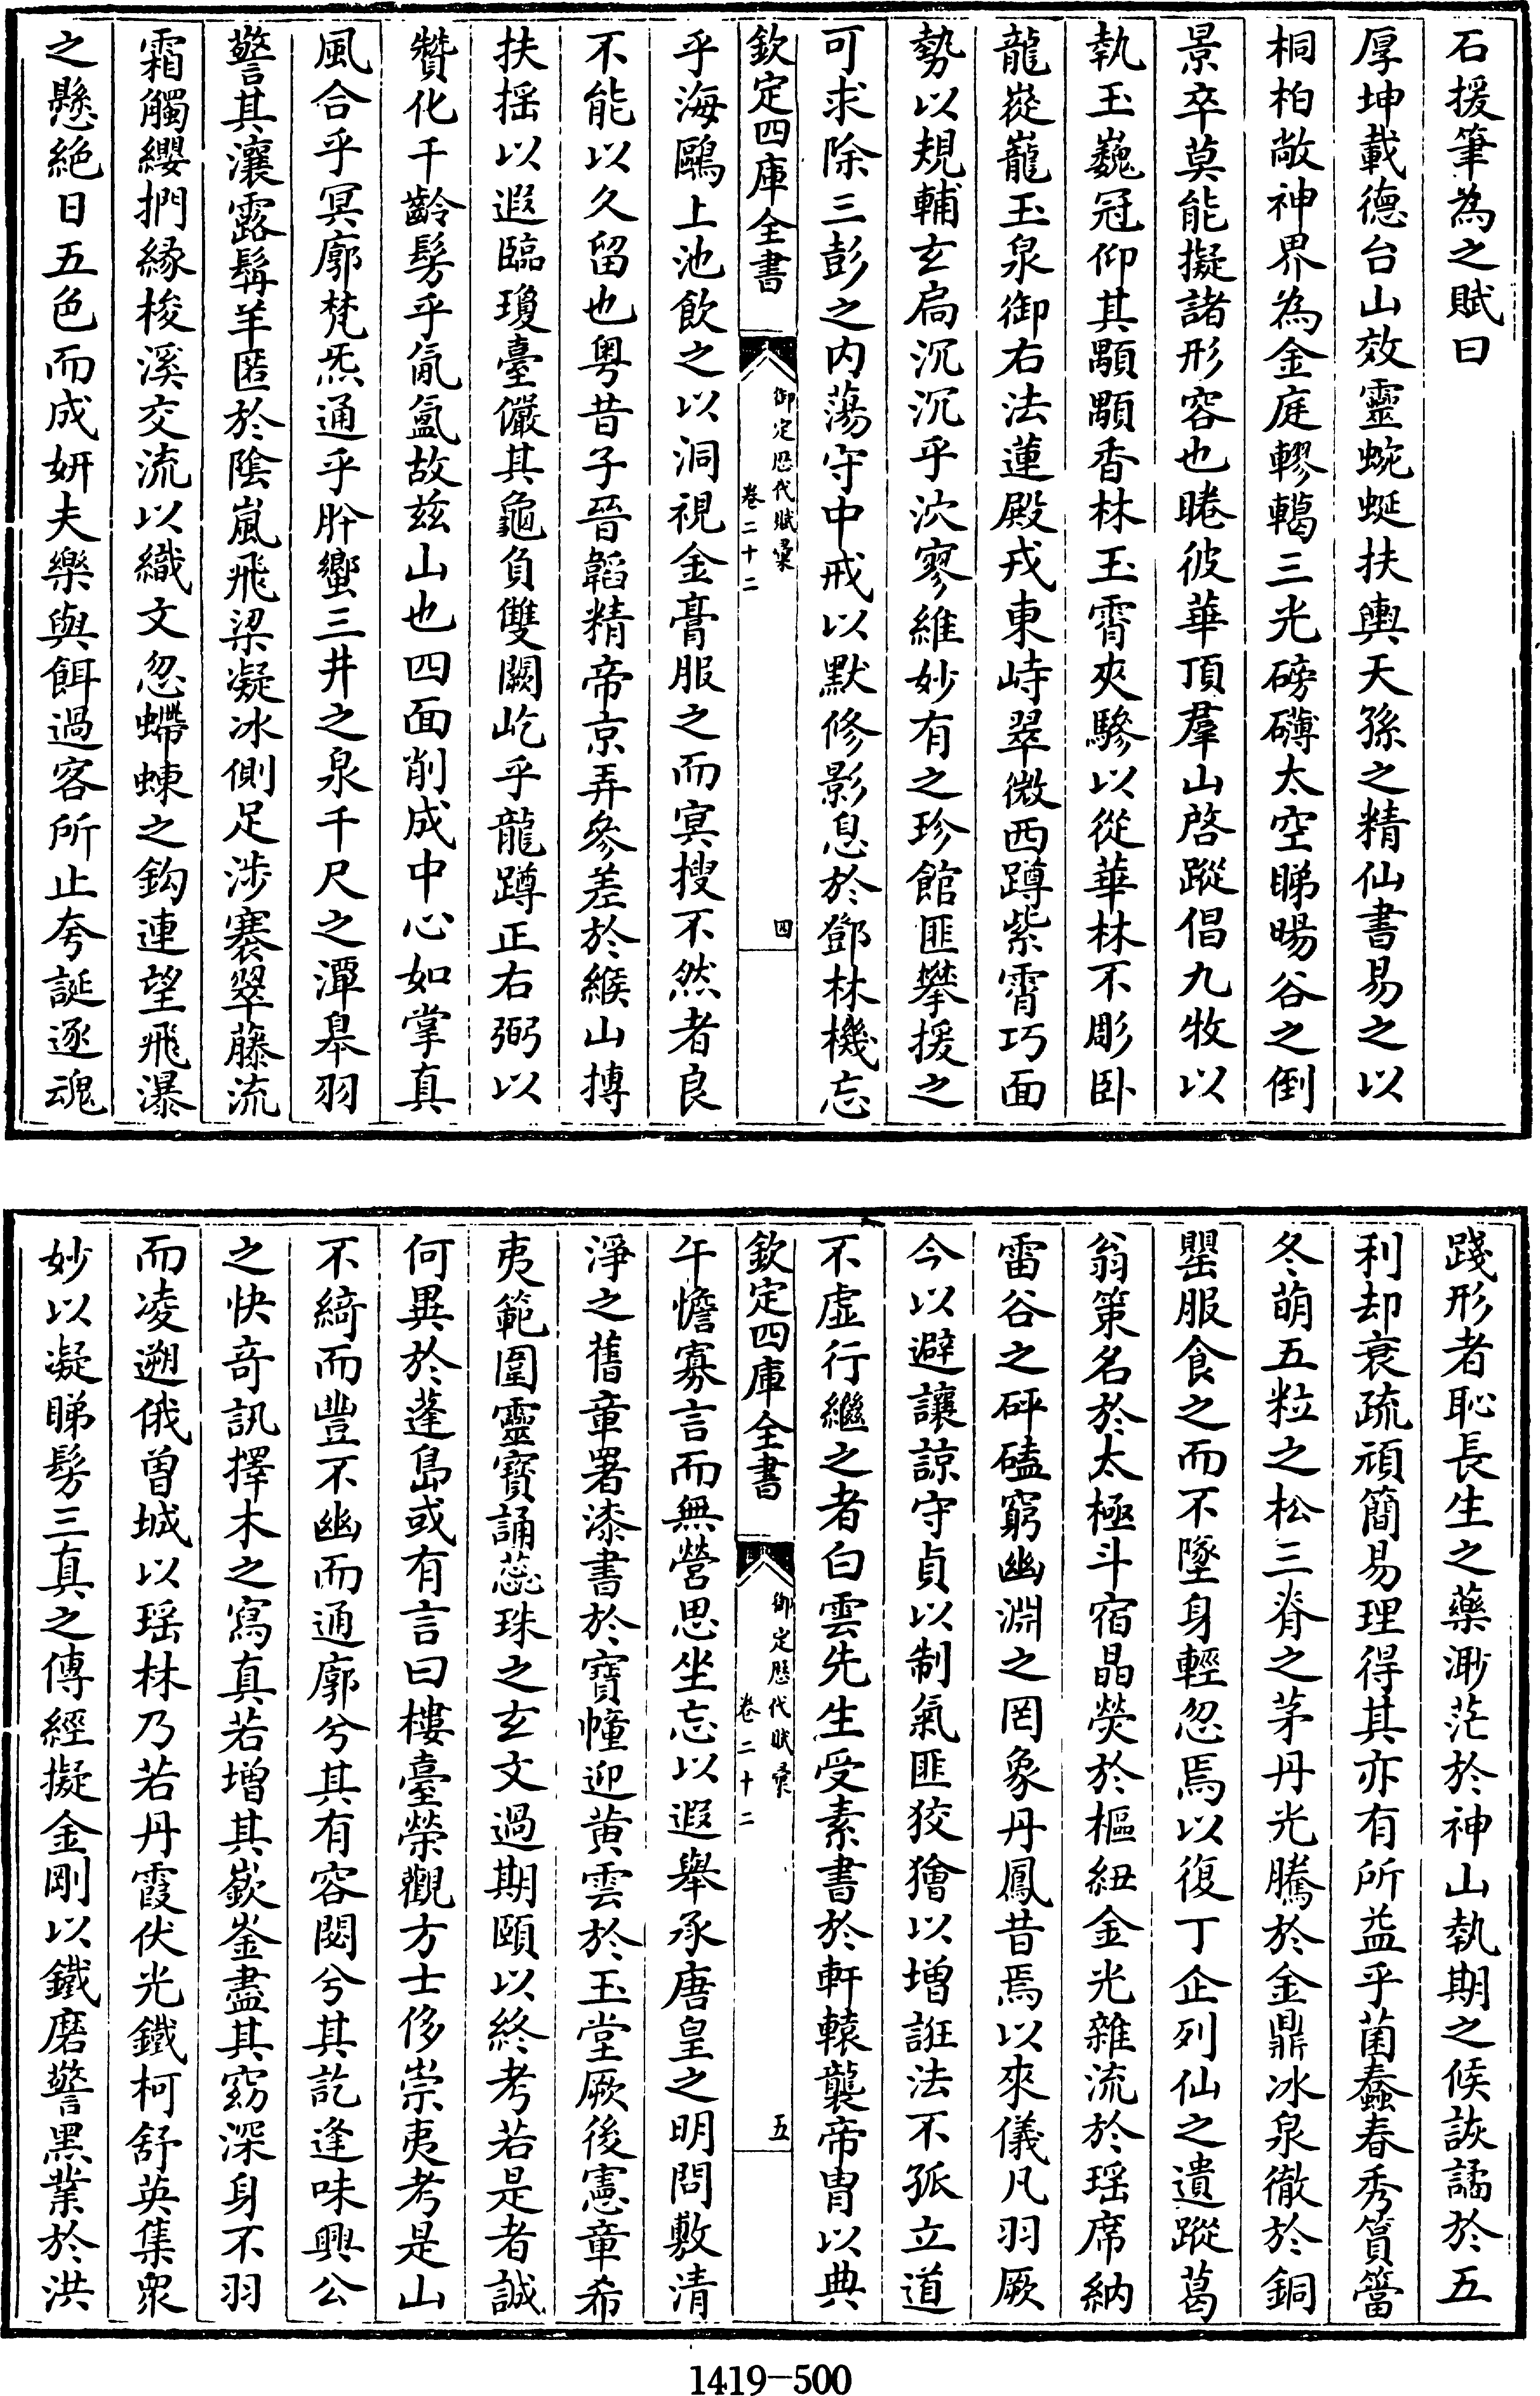 石援筆為之賦曰
厚坤載德台山效靈蜿蜒扶輿天孫之精仙書易之以
桐柏敞神界為金庭轇轕三光磅礴太空睇暘谷之倒
景卒莫能擬諸形容也睠彼華頂羣山啓蹤倡九牧以
執玉巍冠仰其顒顒香林玉霄夾驂以從華林不彫卧
龍嵸巃玉泉御右法蓮殿戎東峙翠微西蹲紫霄巧面
勢以規輔玄扃沉沉乎泬寥維妙有之珍館匪攀援之
可求除三彭之内蕩守中戒以默修影息於鄧林機忘
欽定四庫全書
御定歷代賦彙
卷二十二
四
乎海鷗上池飲之以洞視金膏服之而冥搜不然者良
不能以久留也粤昔子晉韜精帝京弄參差於緱山摶
扶摇以遐臨瓊臺儼其龜負雙闕屹乎龍蹲正右弼以
贊化千齡髣乎氤氲故兹山也四面削成中心如掌真
風合乎冥廓梵炁通乎肸蠁三井之泉千尺之潭臯羽
警其瀼露髯羊匿於陰嵐飛梁凝冰側足涉褰翠藤流
霜觸纓捫緣梭溪交流以織文忽螮蝀之鈎連望飛瀑
之懸絶日五色而成妍夫樂與餌過客所止夸誕逐魂
踐形者恥長生之藥渺茫於神山執期之候詼譎於五
利却衰疏頑簡易理得其亦有所益乎菌蠢春秀篔簹
冬萌五粒之松三脊之茅丹光騰於金鼎冰泉徹於銅
罌服食之而不墜身輕忽焉以復丁企列仙之遺蹤葛
翁策名於太極斗宿晶熒於樞紐金光雜流於瑶席納
雷谷之砰磕窮幽淵之罔象丹鳳昔焉以來儀凡羽厥
今以避讓諒守貞以制氣匪狡獪以增誑法不孤立道
不虚行繼之者白雲先生受素書於軒轅襲帝胄以典
欽定四庫全書
御定歷代賦彙
卷二十二
五
午憺寡言而無營思坐忘以遐舉承唐皇之明問敷清
淨之舊章署漆書於寶幢迎黄雲於玉堂厥後憲章希
夷範圍靈寶誦蕊珠之玄文過期頤以終考若是者誠
何異於蓬島或有言曰樓臺榮觀方士侈崇夷考是山
不綺而豐不幽而通廓兮其有容閟兮其訖逢味興公
之快奇訊擇木之寫真若增其嶔崟盡其窈深身不羽
而凌遡俄曽城以瑶林乃若丹霞伏光鐵柯舒英集衆
妙以凝睇髣三真之傳經擬金剛以鐵磨警黑業於洪
1419-500